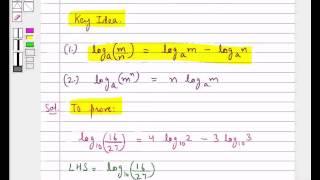 Key Idea.
(1.) logₐ(m/n) = logₐm − logₐn
(2.) logₐ(mⁿ) = n logₐm
Sol. To prove:
log₁₀(16/27) = 4 log₁₀2 − 3 log₁₀3
LHS = log₁₀(16/27)